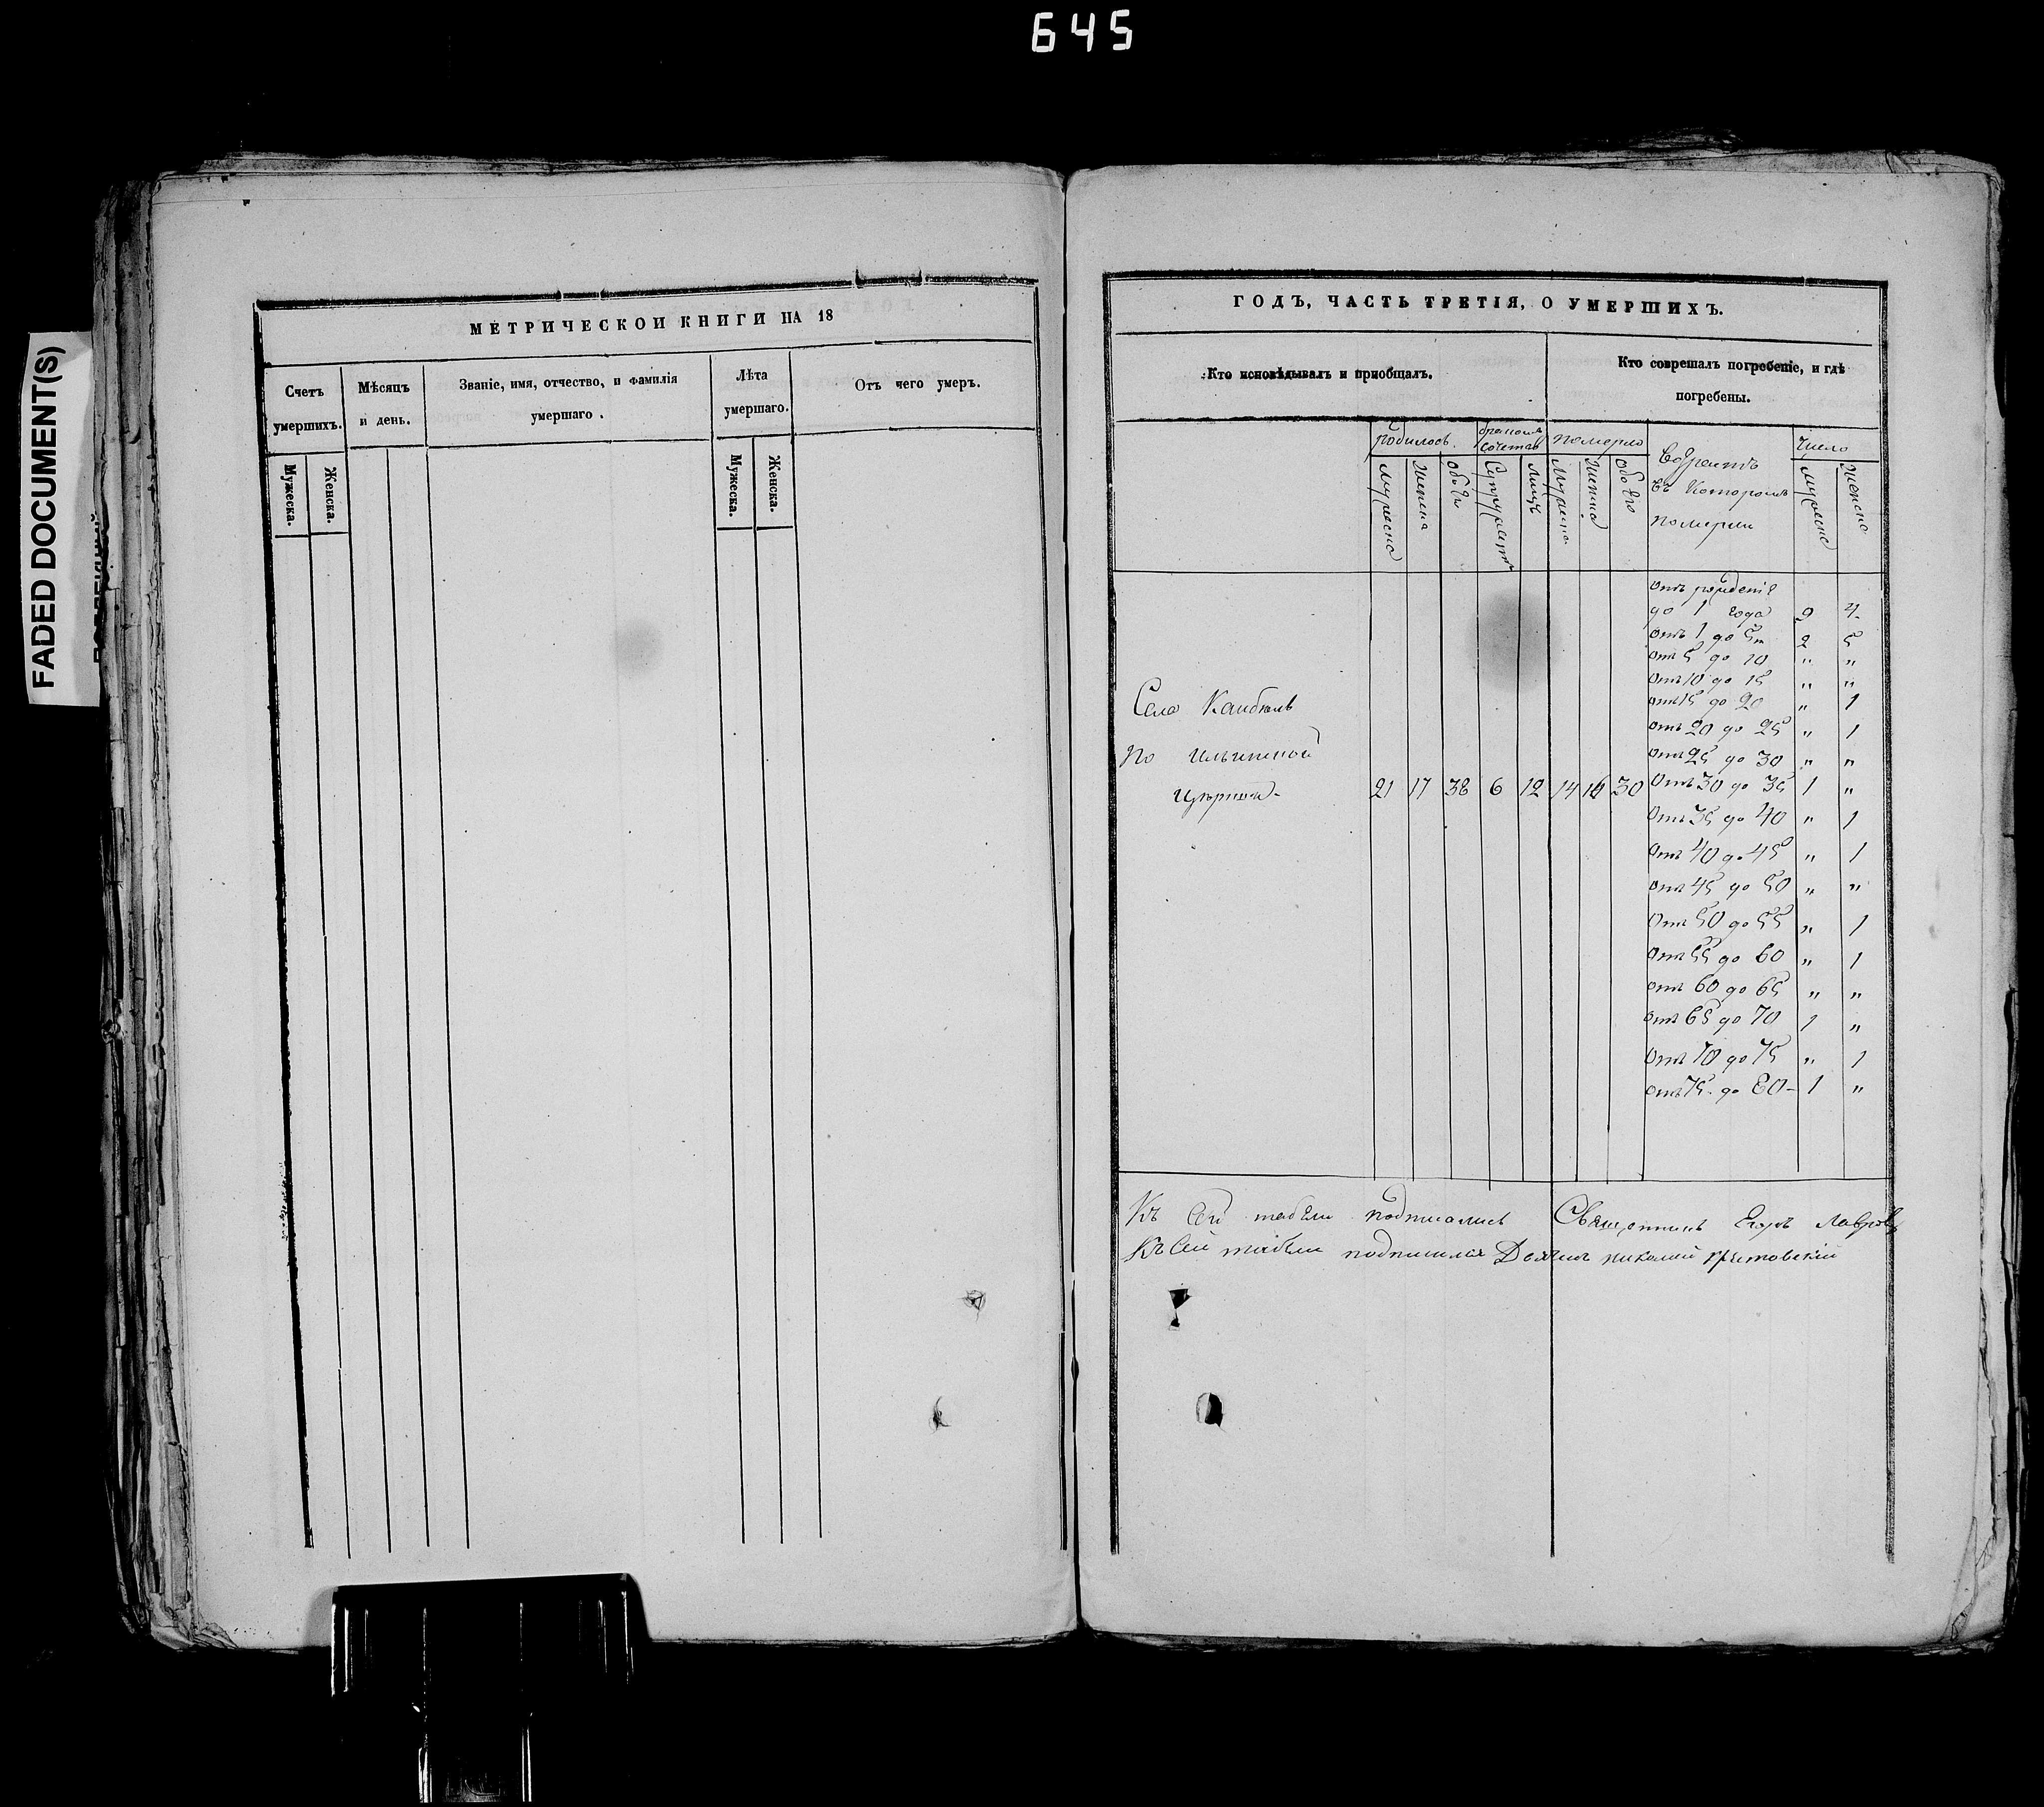 645
FADED DOCUMENT(S)
МЕТРИЧЕСКОИ КНИГИ НА 18
Счетъ умершихъ.
Мѣсяцъ и день.
Званіе, имя, отчество, и фамилія умершаго.
Лѣта умершаго.
Отъ чего умеръ.
Мужеска.
Женска.
Мужеска.
Женска.
ГОДЪ, ЧАСТЬ ТРЕТІЯ, О УМЕРШИХЪ.
Кто исповѣдывалъ и приобщалъ.
Кто соврешалъ погребеніе, и гдѣ
погребены.
родилось
сочетав
померло
число
мужеска
женска
обѣг
Супружест
Лицъ
Мужеска
женска
обоего
въ которомъ
померли
мужеска
женска
отъ рожденія
до 1 года 9 4
отъ 1 до 5 2 5
отъ 5 до 10 " "
отъ 10 до 15 " "
отъ 15 до 20 " 1
отъ 20 до 25 " 1
отъ 25 до 30 " "
Села
по Ильинской
Церкви 21 17 38 6 12 14 16 30 Отъ 30 до 35 1 "
Отъ 35 до 40 " 1
отъ 40 до 45 " 1
отъ 45 до 50 " "
Отъ 50 до 55 " 1
отъ 55 до 60 " 1
отъ 60 до 65 " "
отъ 65 до 70 1 "
отъ 70 до 75 " 1
отъ 75 до 80 - 1 "
Къ сей табели подписались Священникъ Егоръ Лавровъ
Къ сей табели подписался Дьячекъ николай